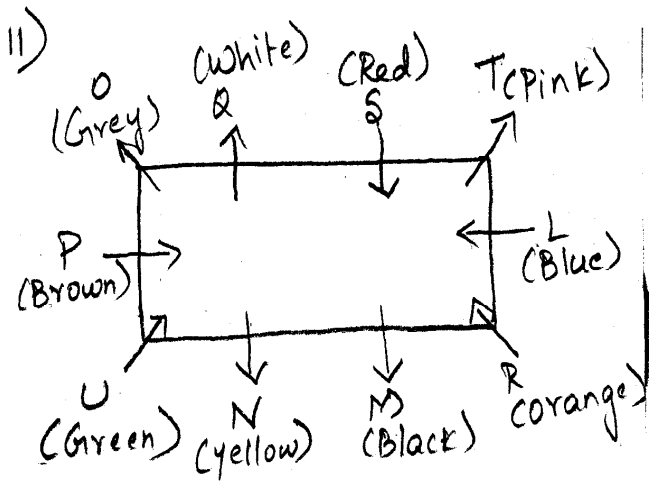 11)
O
(Grey)
(White)
Q
(Red)
S
T(Pink)
P
(Brown)
L
(Blue)
U
(Green)
N
(yellow)
M
(Black)
R
(orange)